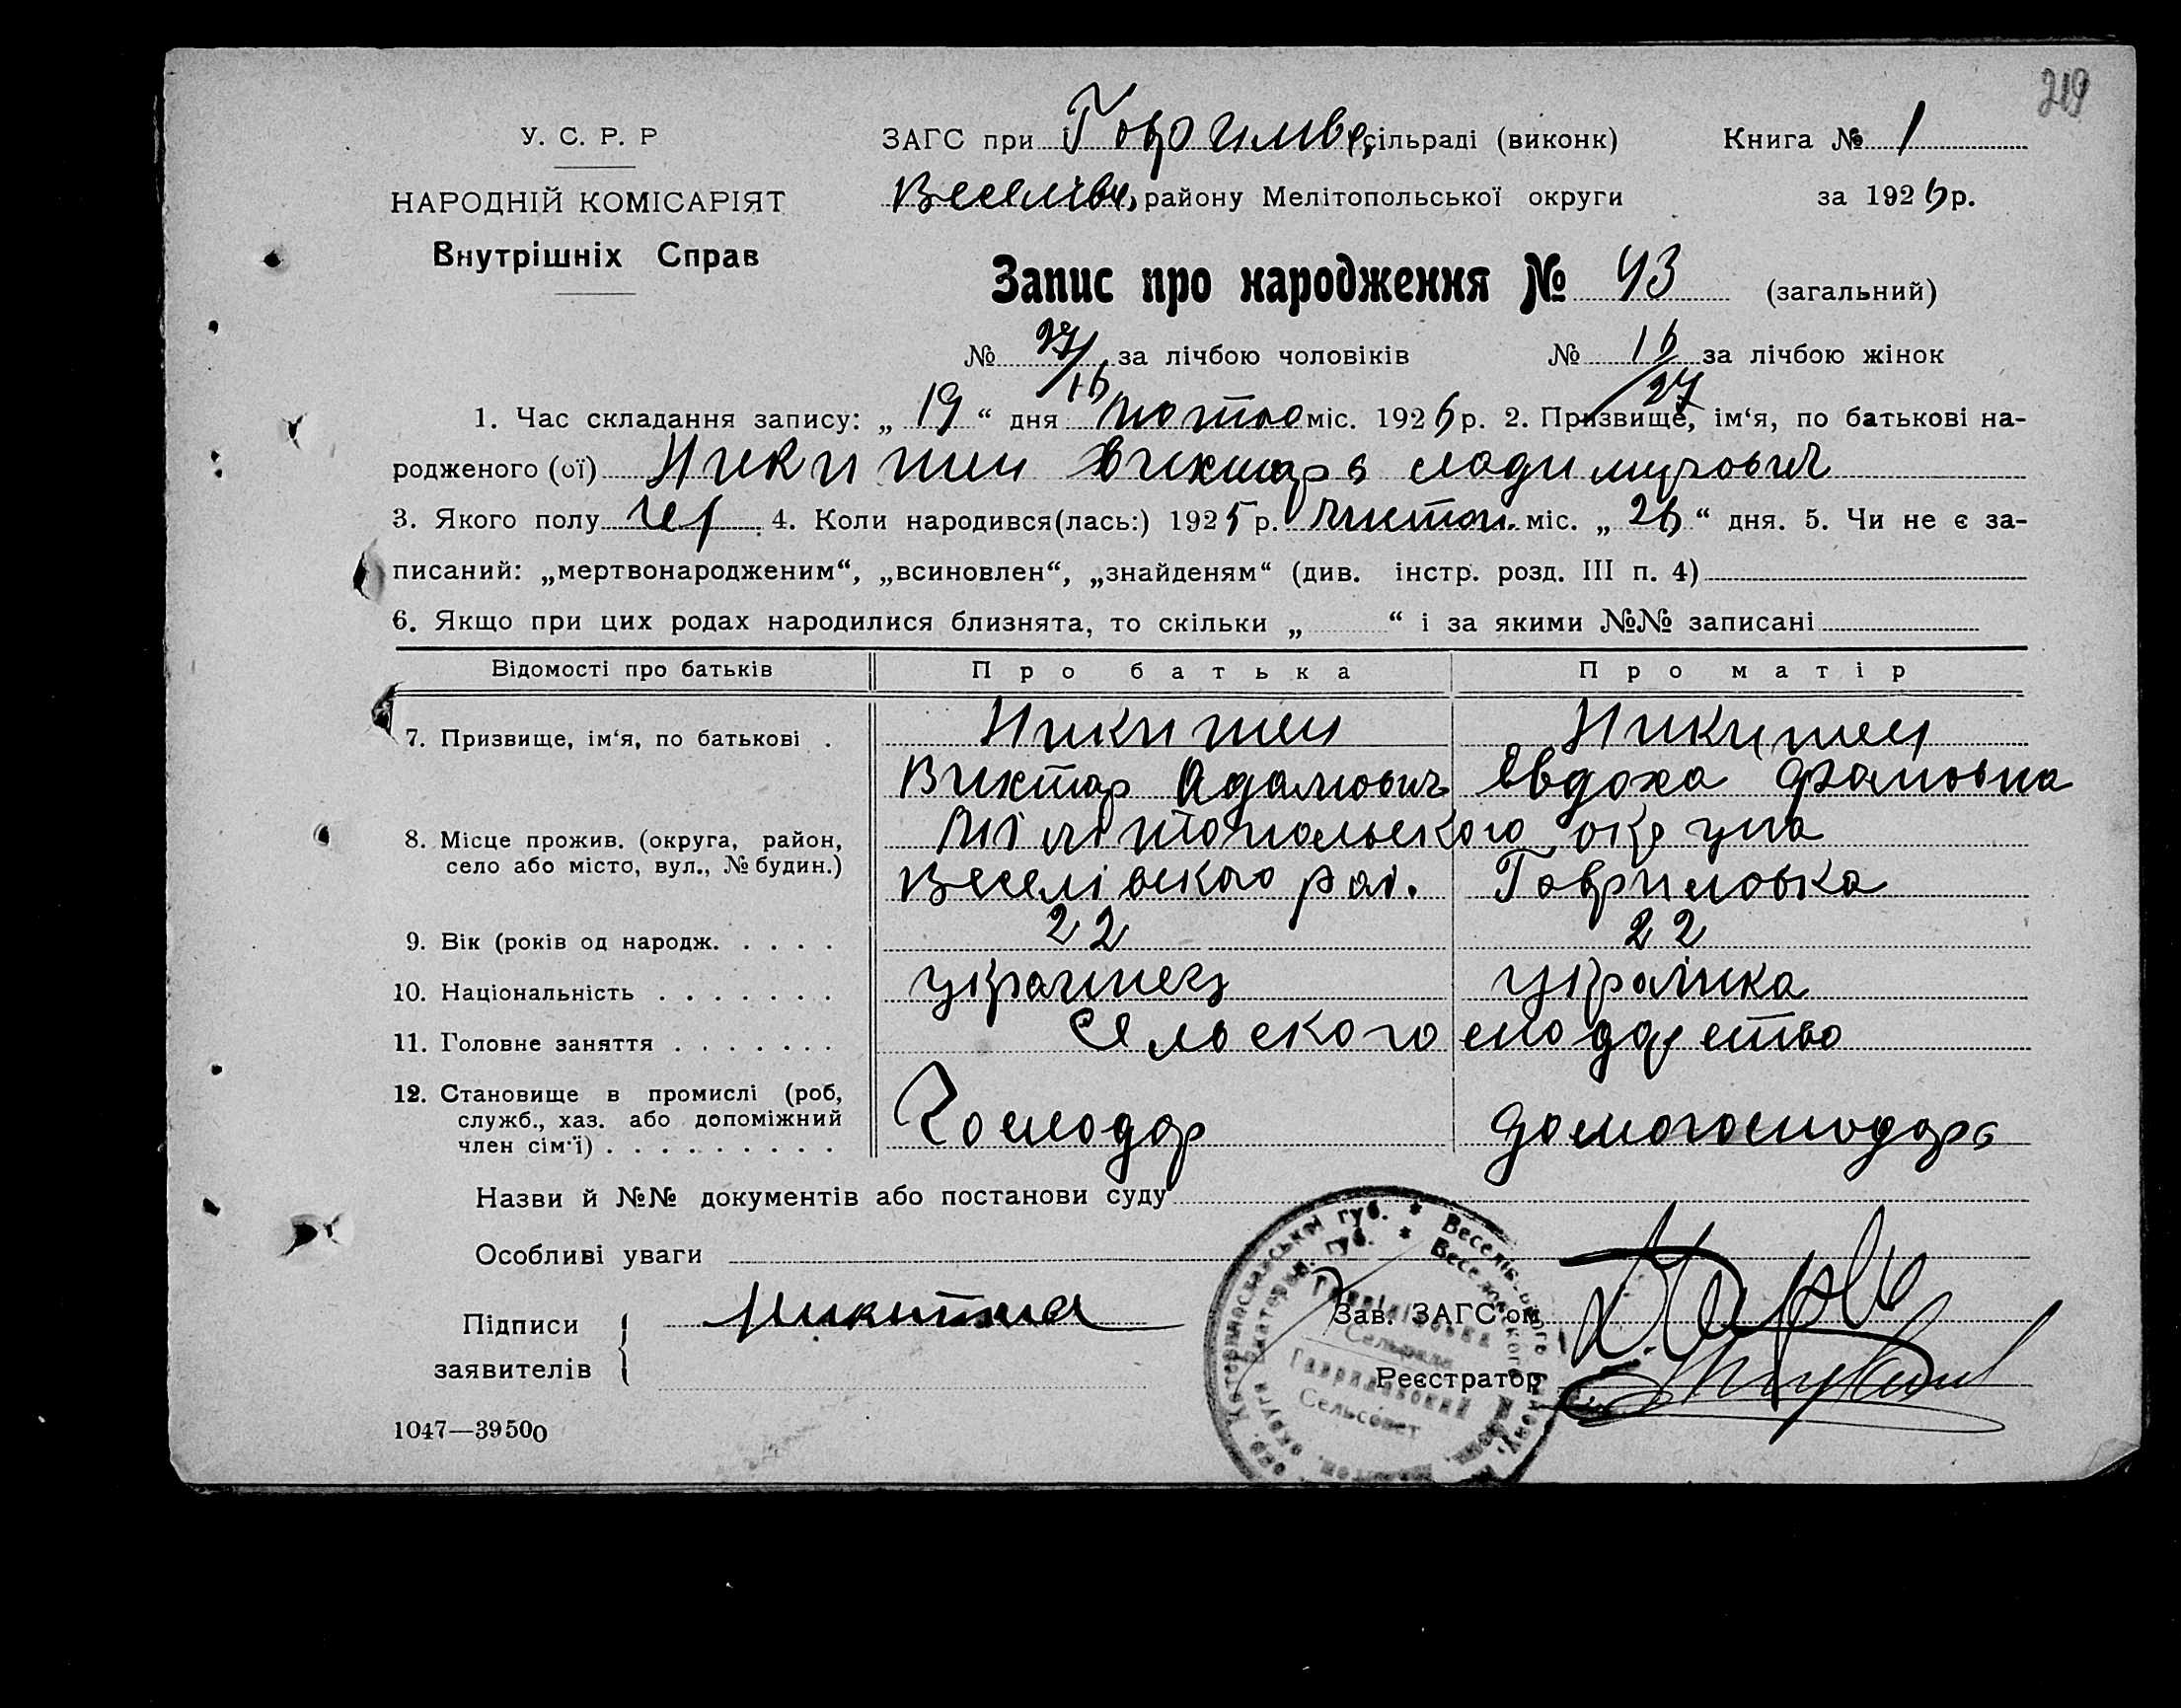 219
У. С. Р. Р
НАРОДНІЙ КОМІСАРІЯТ
Внутрішніх Справ
ЗАГС при Гаврилив, сільраді (виконк) Книга № 1
Веселівс, району Мелітопольської округи за 1926 р.
Запис про народження № 43 (загальний)
№ 27/16 за лічбою чоловіків № 16/27 за лічбою жінок
1. Час складання запису: „ 19 “ дня лютого міс. 1926 р. 2. Призвище, імʻя, по батькові на-
родженого (ої) Никишен Виктарь
3. Якого полу 4. Коли народився(лась:) 1925 р. листоп. міс. „ 26 “ дня. 5. Чи не є за-
писаний: „мертвонародженим“, „всиновлен“, „знайденям“ (див. інстр. розд. III п. 4)
6. Якщо при цих родах народилися близнята, то скільки „ “ і за якими №№ записані
Відомості про батьків Про батька Про матір
7. Призвище, імʻя, по батькові . Никишен Никишен
Виктар Адамович Евдоха
8. Місце прожив. (округа, район, Мілітопольского округа
село або місто, вул., № будин.) Веселівского рай. Гавриловка
9. Вік (років од народж. . . . . 22 22
10. Національність . . . . . . . украинец украінка
11. Головне заняття . . . . . . .
12. Становище в промислі (роб,
служб., хаз. або допоміжний Господар домогосподарь
член сімʻї) . . . . . . . . .
Назви й №№ документів або постанови суду
Особливі уваги
Підписи
заявителів
Зав. ЗАГС'ом
Реєстратор
Сельрада
Гавриловский
Сельсовет
1047—39500